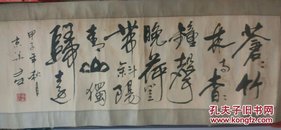 蒼々竹
林寺杳々
鐘聲
晚荷笠
帶斜陽
青山獨
歸遠
甲子年秋